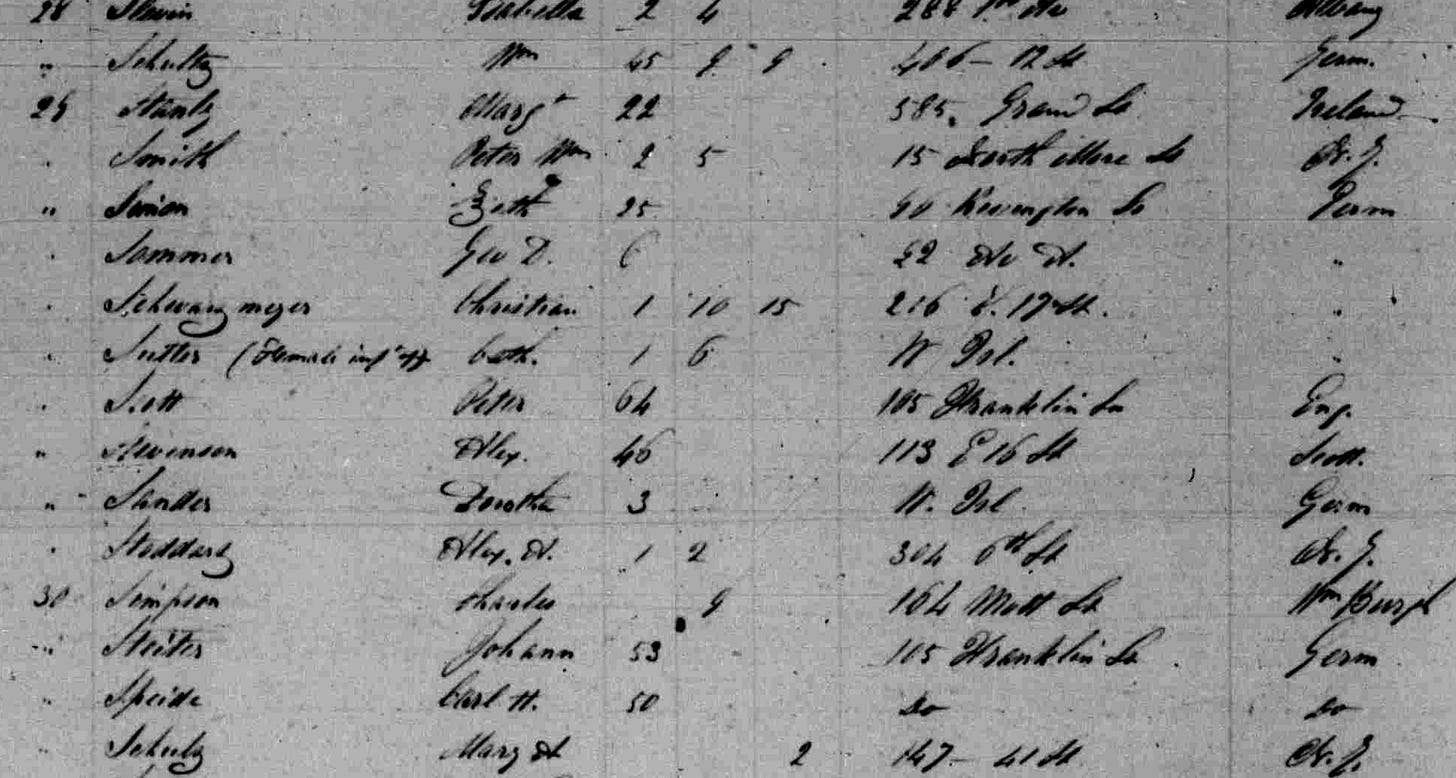 28 Slevin Isabella 2 4 288 1st Av Albany
" Schultz Wm 45 9 9 406 - 12 St Germ.
29 Margt 22 585 Grand St Ireland
. Smith Peter Wm 2 5 15 N. Y.
" Simon 25 60 Rivington St Germ
. Sommer Geo D. 6 52 Av A. "
. Schwarzmeyer Christian 1 10 15 216 E. 17 St. "
. Sutter (Female Cath. 1 6 W Isl. "
. Scott Peter 64 105 Franklin St Eng.
" Stevenson Alex. 46 113 E 16 St Scott.
" Sander Dorothea 3 W. Isl. Germ
. Stoddard Alex. A. 1 2 304 6th St N. Y.
30 Simpson Charles 9 164 Mott St WmBurgh
" Steiter Johann 53 105 Franklin St Germ
" Speide Carl H. 50 Do Do
" Schultz Mary A 2 147 - 41 St N. Y.